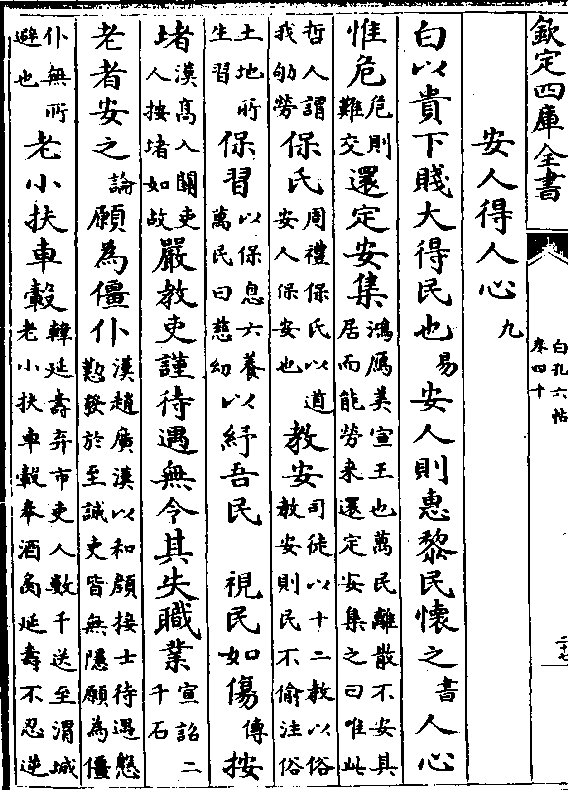 欽定四庫全書
白孔六帖
卷四十
安人得人心九
白以貴下賤大得民也易安人則惠黎民懷之書人心
惟危危則難交還定安集鴻鴈美宣王也萬民離散不安其居而能勞来還定安集之曰唯此
哲人謂我劬勞保氏周禮保氏以道安人保安也教安司徒以十二教以俗教安則民不偷注俗
土地所生習保習以保息六養萬民曰慈幼以紓吾民視民如傷傳按
堵漢髙入關吏人按堵如故嚴教吏謹待遇無令其失職業宣詔二千石
老者安之論願為僵仆漢趙廣漢以和顔接士待遇慇懃發於至誠吏皆無隱願為僵
仆無所避也老小扶車轂韓延壽弃市吏人數千送至渭城老小扶車轂奉酒延壽不忍逆